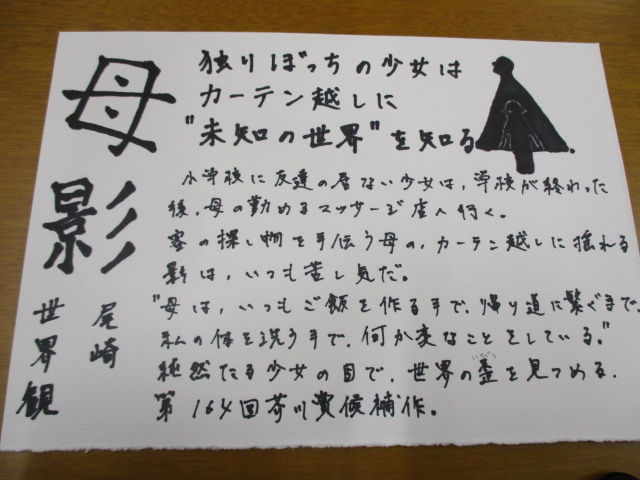 母影
尾崎
世界観
独りぼっちの少女は
カーテン越しに
"未知の世界"を知る
.
小学校に友達の居ない少女は、学校が終わった
後、母の勤めるマッサージ店へ行く。
客の探し物を手伝う母の、カーテン越しに揺れる
影は、いつも苦し気だ。
"母は、いつもご飯を作る手で、帰り道に繋ぐ手で、
私の体を洗う手で、何か変なことをしている。"
純然たる少女の目で、世界の歪を見つめる.
いびつ
第164回芥川賞候補作。